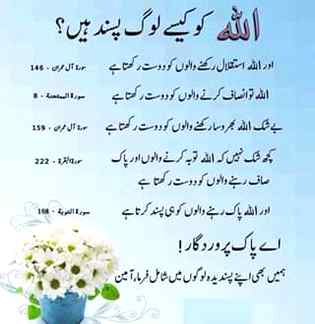 اللہ کو کیسے لوگ پسند ہیں؟
اور اللہ استقلال رکھنے والوں کو دوست رکھتا ہے سورۃ آل عمران - 146
اللہ تو انصاف کرنے والوں کو دوست رکھتا ہے سورۃ الممتحنۃ - 8
بے شک اللہ بھروسا رکھنے والوں کو دوست رکھتا ہے سورۃ آل عمران - 159
کچھ شک نہیں کہ اللہ توبہ کرنے والوں اور پاک سورۃ البقرۃ - 222
صاف رہنے والوں کو دوست رکھتا ہے
اور اللہ پاک رہنے والوں کو ہی پسند کرتا ہے سورۃ التوبۃ - 108
اے پاک پروردگار!
ہمیں بھی اپنے پسندیدہ لوگوں میں شامل فرما، آمین